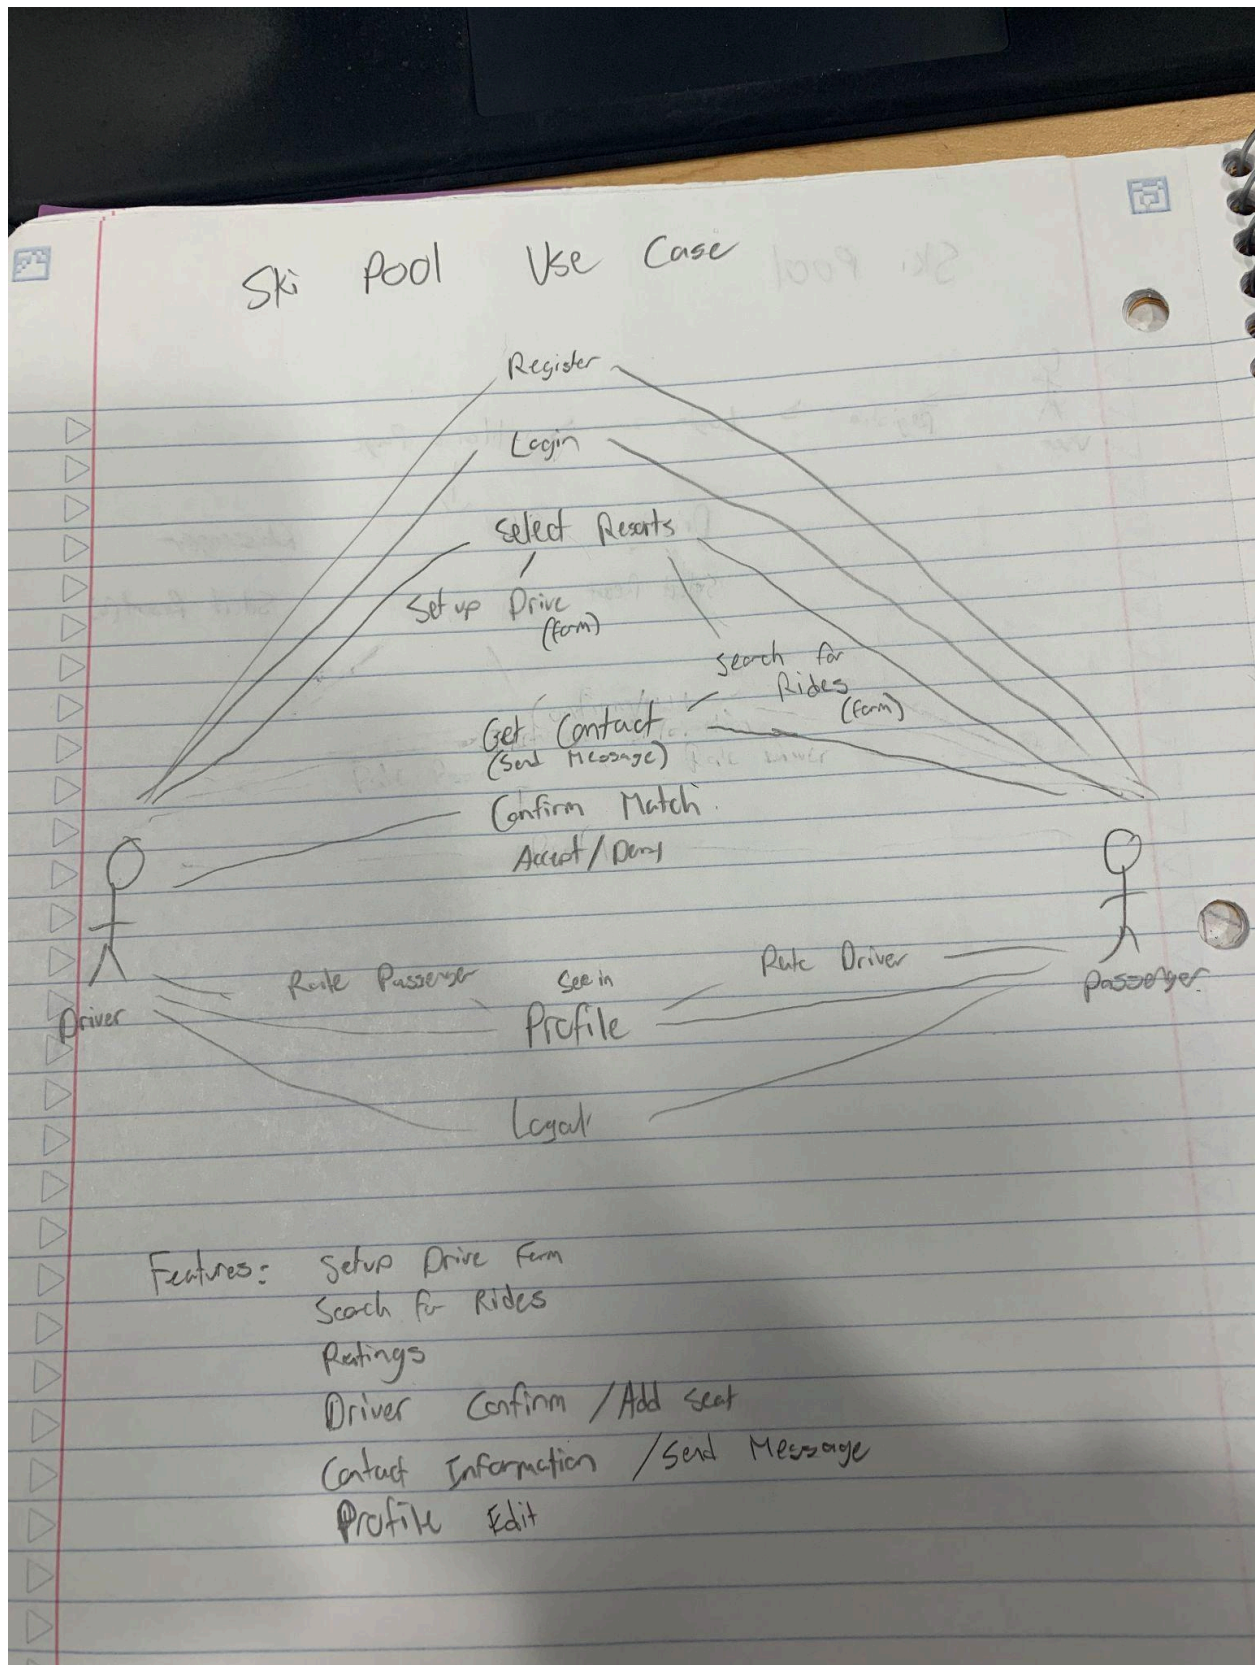 Ski Pool Use Case
Register
Login
Select Resorts
Set up Drive
(form)
Search for
Rides
(form)
Get Contact
(Send Message)
Confirm Match
Accept/Deny
Rate Passenger
See in
Rate Driver
Profile
Driver
Passenger
Logout
Features: Setup Drive Form
Search for Rides
Ratings
Driver Confirm / Add seat
Contact Information / Send Message
Profile Edit